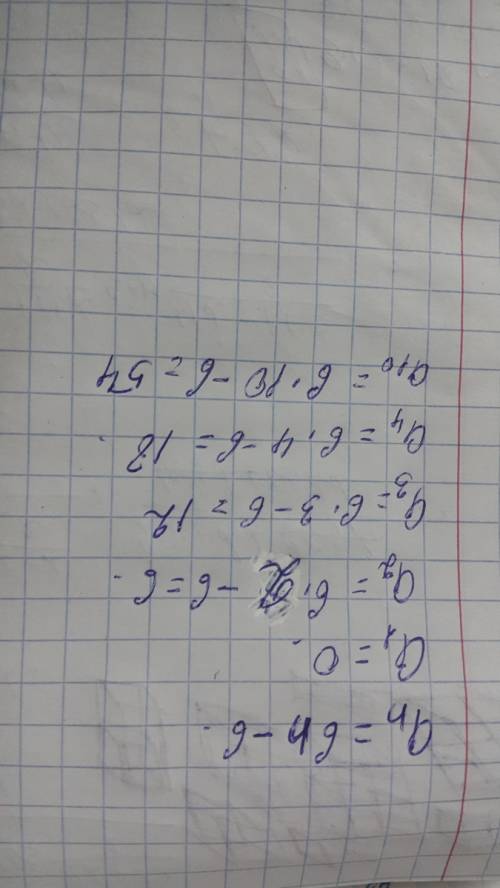 aₙ = 6n - 6.
a₁ = 0.
a₂ = 6·2 - 6 = 6.
a₃ = 6·3 - 6 = 12
a₄ = 6·4 - 6 = 18.
a₁₀ = 6·10 - 6 = 54